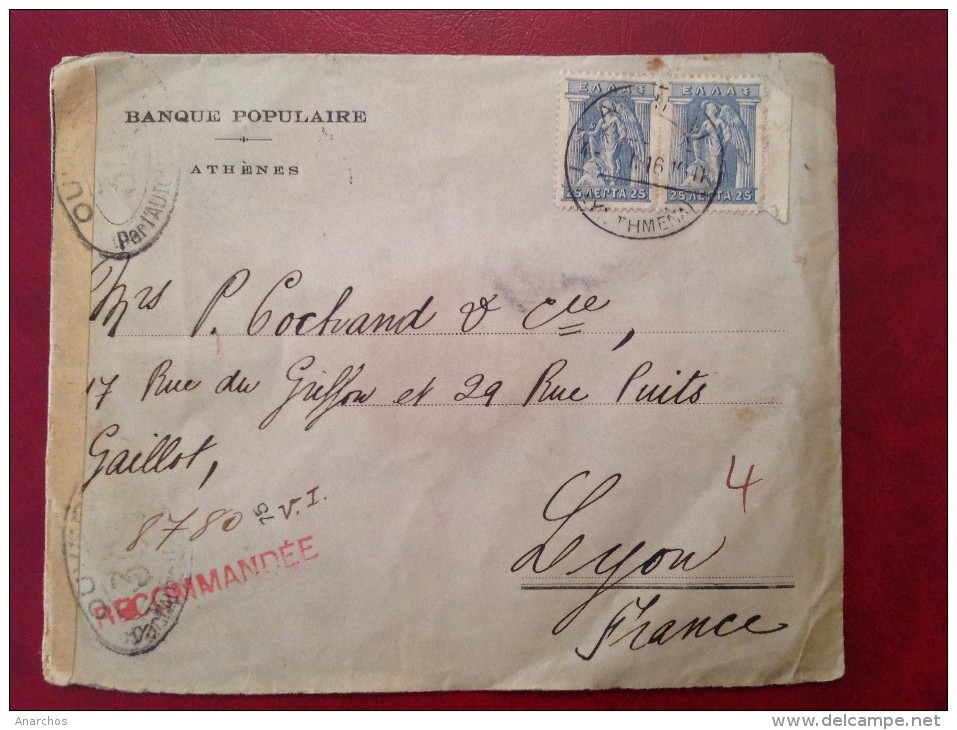 BANQUE POPULAIRE
ATHÈNES
ΕΛΛΑΣ
25 ΛΕΠΤΑ 25
25 ΛΕΠΤΑ 25
16
OU
par l'Auto
Mrs P. Cochand & Cie,
17 Rue du Griffon et 29 Rue Puits
Gaillot,
8780
75
V. I.
4
RECOMMANDÉE
Lyon
France
Anarchos
www.delcampe.net